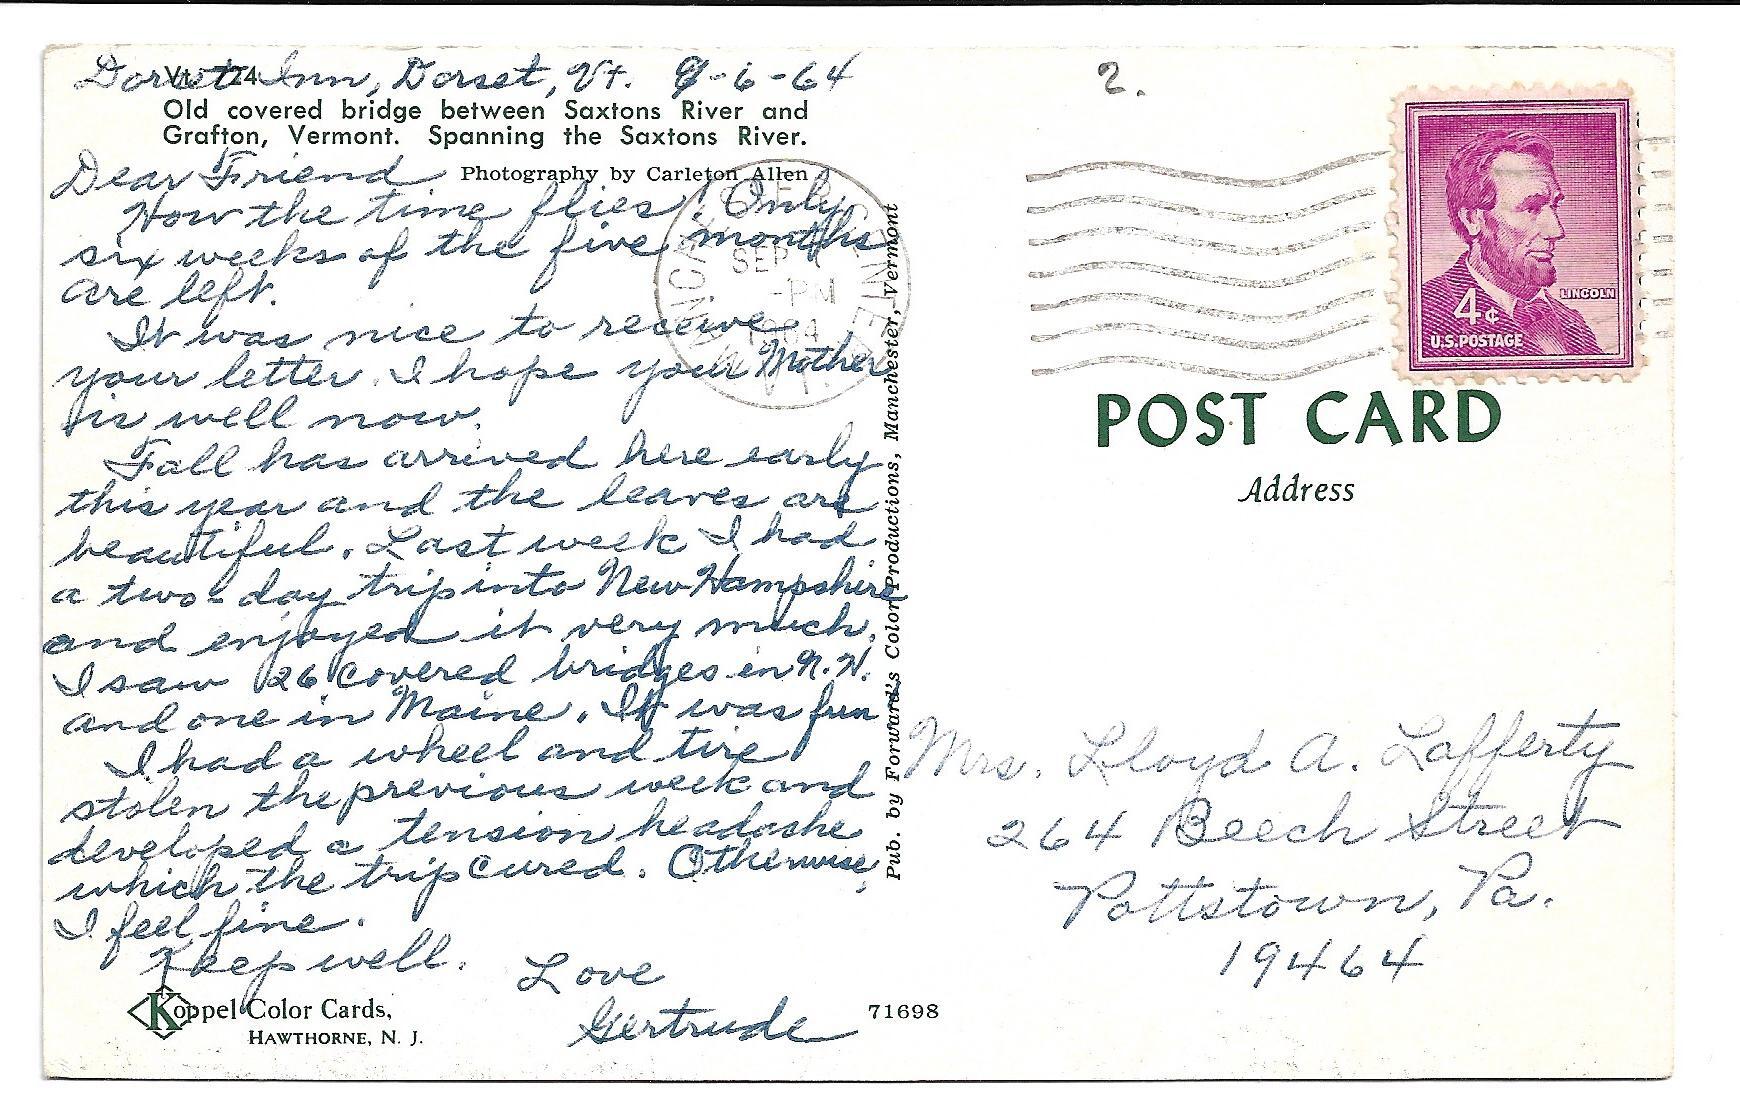 Dorset Inn, Dorset, Vt. 9-6-64
Old covered bridge between Saxtons River and
Grafton, Vermont. Spanning the Saxtons River.
Photography by Carleton Allen
Dear Friend
How the time flies! Only
six weeks of the five months
are left.
It was nice to receive
your letter. I hope your Mother
is well now.
Fall has arrived here early
this year and the leaves are
beautiful. Last week I had
a two-day trip into New Hampshire
and enjoyed it very much.
I saw 26 covered bridges in N.H.
and one in Maine. It was fun
I had a wheel and tire
stolen the previous week and
developed a tension headache
which the trip cured. Otherwise,
I feel fine.
Keep well. Love
Gertrude
Koppel Color Cards,
HAWTHORNE, N. J.
71698
Pub. by Forward's Color Productions, Manchester, Vermont
SEP
PM
1964
VT.
2.
LINCOLN
4¢
U.S. POSTAGE
POST CARD
Address
Mrs. Lloyd A. Lafferty
264 Beech Street
Pottstown, Pa.
19464